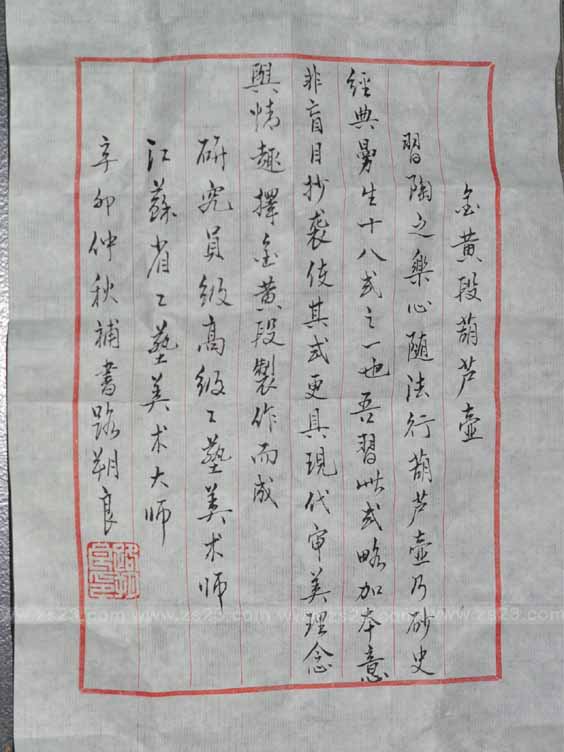 金黄段葫芦壶
習陶之樂心随法行葫芦壶乃砂史
經典曼生十八式之一也吾習此式略加本意
非盲目抄袭使其式更具現代审美理念
與情趣擇金黄段製作而成
研究員级高级工藝美术师
江蘇省工藝美术大师
辛卯仲秋補書路朔良
www.zs23.com www.zs23.com www.zs23.com